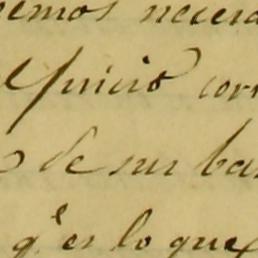 emos necesa
Quirio cor
o de sus ba
q.e es lo que